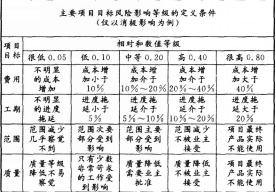 主要项目目标风险影响等级的定义条件
（仅以消极影响为例）
项目目标
相对和数值等级
很低 0.05
低 0.10
中等 0.20
高 0.40
很高 0.80
费用
不明显的成本增加
成本增加小于10%
成本增加介于10%～20%
成本增加介于20%～40%
成本增加大于40%
工期
不明显的进度拖延
进度拖延小于5%
进度拖延介于5%～10%
进度拖延介于10%～20%
进度拖延大于20%
范围
范围减少几乎察觉不到
范围次要部分受到影响
范围主要部分受到影响
范围减少不被业主接受
项目最终产品实际不能使用
质量
质量等级降低不易察觉
只有少数非常苛求的工作受到影响
质量降低需要业主批准
质量降低不被业主接受
项目最终产品实际不能使用